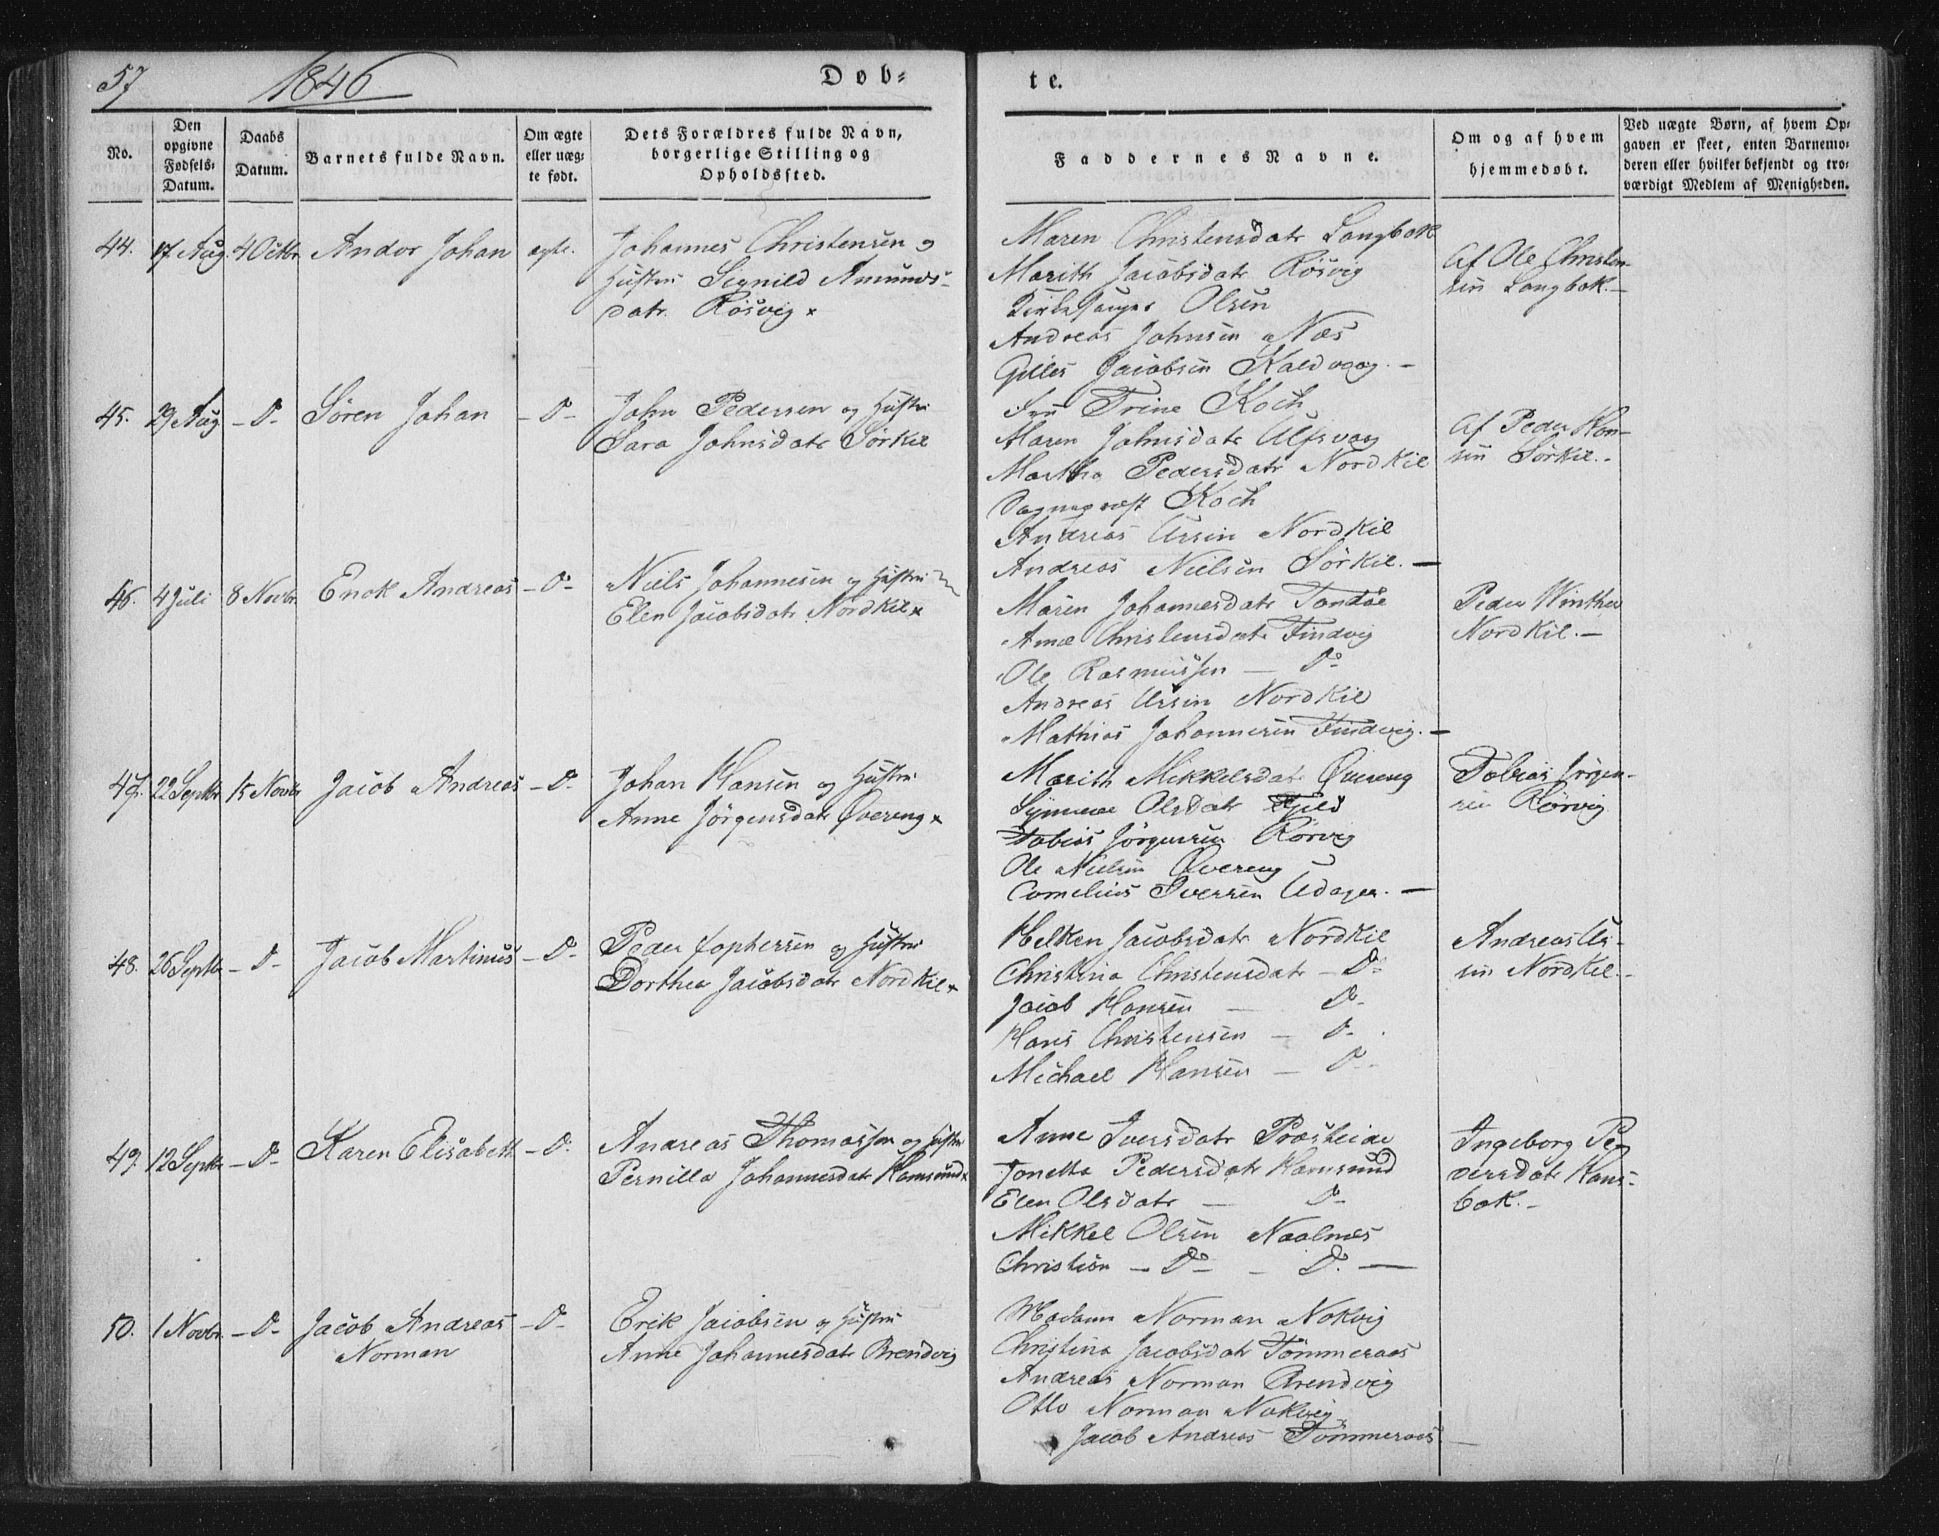 57 1846 Døb-
te.
No.
Den opgivne Fødsels-Datum.
Daabs Datum.
Barnets fulde Navn.
Om ægte eller uæg-te født.
Dets Forældres fulde Navn, borgerlige Stilling og Opholdssted.
Faddernes Navne.
Om og af hvem hjemmedøbt.
Ved uægte Børn, af hvem Op-gaven er skeet, enten Barnemo-deren eller hvilket bekjendt og tro-værdigt Medlem af Menigheden.
44. 17 Aug. 4 Octbr. Andor Johan ægte.
Johannes Christensen og
Hustru Signild Amunds-
datr. Røsvig x
Maren Christensdatr Langbok
Marith Jacobsdatr Røsvig
Kirkesanger Olsen
Andreas Johnsen Næs
Gilles Jacobsen Kaldvaag.-
Af Ole Christen-
sen Langbok.-
45. 29 Aug -D- Søren Johan -D-
John Pedersen og Hustru
Sara Johnsdatr Sørkil
Fru Trine Koch
Maren Johnsdatr Ulfsvaag
Martha Pedersdatr Nordkil
Sogneprest Koch
Andreas Ursin Nordkil
Andreas Nielsen Sørkil.-
Af Peder Han-
sen Sørkil.-
46. 4 Juli 8 Novbr. Enok Andreas -D-
Niels Johannesen og Hustru
Elen Jacobsdatr Nordkil x
Maren Johannesdatr Tandøe
Anne Christensdatr Findvig
Ole Rasmussen - D-
Andreas Ursin Nordkil
Mathias Johannesen Findvig.-
Peder Winther
Nordkil.-
47. 22 Septbr 15 Novbr Jacob Andreas -D-
Johan Hansen og Hustru
Anne Jørgensdatr Øvereng x
Marith Mikkelsdatr Øvereng
Olsdatr Fjeld
Tobias Jørgensen Rørvig
Ole Nielsen Øvereng
Cornelius Iversen
Tobias Jørgen-
sen Rørvig
48. 26 Septbr -D- Jacob Martinus -D-
Peder Tophersen og Hustru
Dorthea Jacobsdatr Nordkil x
Helken Jacobsdatr Nordkil
Christina Christensdatr -D-
Jacob Hansen - D-
Hans Christensen - D-
Michael Hansen - D-
Andreas Ur-
sin Nordkil.-
49. 12 Septbr -D- Karen Elisabeth -D-
Andreas Thomassen og Hustru
Pernilla Johannesdatr Hamsund x
Anne Iversdatr Præsteide
Jonetta Pedersdatr Hamsund
Elen Olsdatr - D-
Mikkel Olsen Naalnæs
Christian -D- - D.-
Ingeborg Pe-
dersdatr Hans-
bak.-
50. 1 Novbr. -D- Jacob Andreas -D-
Norman
Erik Jacobsen og Hustru
Anne Johannesdatr Brendvig
Madam Norman Nokvig
Christina Jacobsdatr Tømmeraas
Andreas Norman Brendvig
Otto Norman Nokvig
Jacob Andreas Tømmeraas -